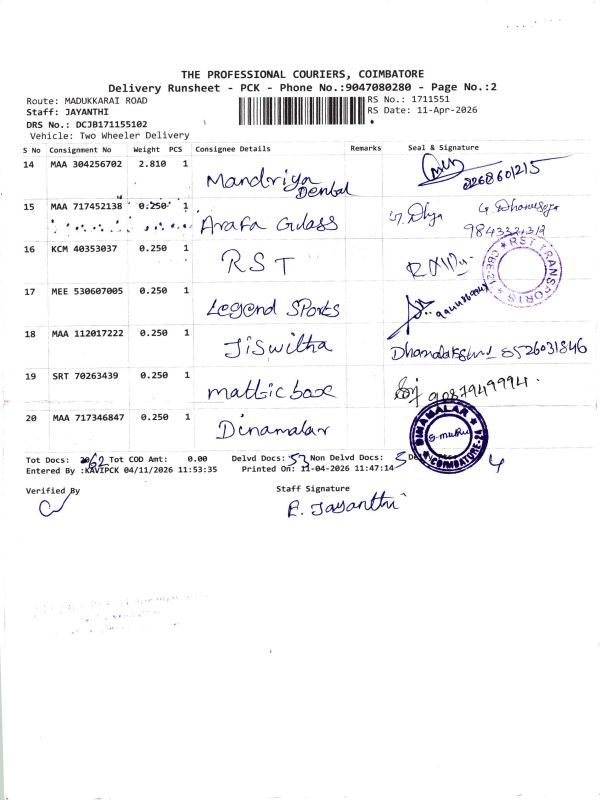 THE PROFESSIONAL COURIERS, COIMBATORE
Delivery Runsheet - PCK - Phone No.:9047080280 - Page No.:2
Route: MADUKKARAI ROAD
RS No.: 1711551
Staff: JAYANTHI
RS Date: 11-Apr-2026
DRS No.: DCJB171155102
Vehicle: Two Wheeler Delivery
S No Consignment No Weight PCS Consignee Details Remarks Seal & Signature
14 MAA 304256702 2.810 1 Mandriya Dental 2268601215
15 MAA 717452138 0.250 1 Arafa Glass
16 KCM 40353037 0.250 1 RST RST TRANSPORTS
17 MEE 530607005 0.250 1 Legend Sports
18 MAA 112017222 0.250 1 Jiswitha 8526031846
19 SRT 70263439 0.250 1 9087949994.
20 MAA 717346847 0.250 1 Dinamalar DINAMALAR COIMBATORE
Tot Docs: 62 Tot COD Amt: 0.00 Delvd Docs: 53 Non Delvd Docs: 5 4
Entered By :KAVIPCK 04/11/2026 11:53:35 Printed On: 11-04-2026 11:47:14
Verified By Staff Signature
E. Jayanthi